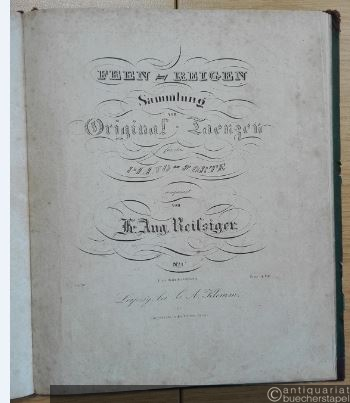 FEEN = REIGEN
Sammlung
von
Original-Taenzen
für das
PIANO=FORTE
componirt
VON
Fr. Aug. Reissiger.
Leipzig, bei C. A. Klemm.
antiquariat
buecherstapel